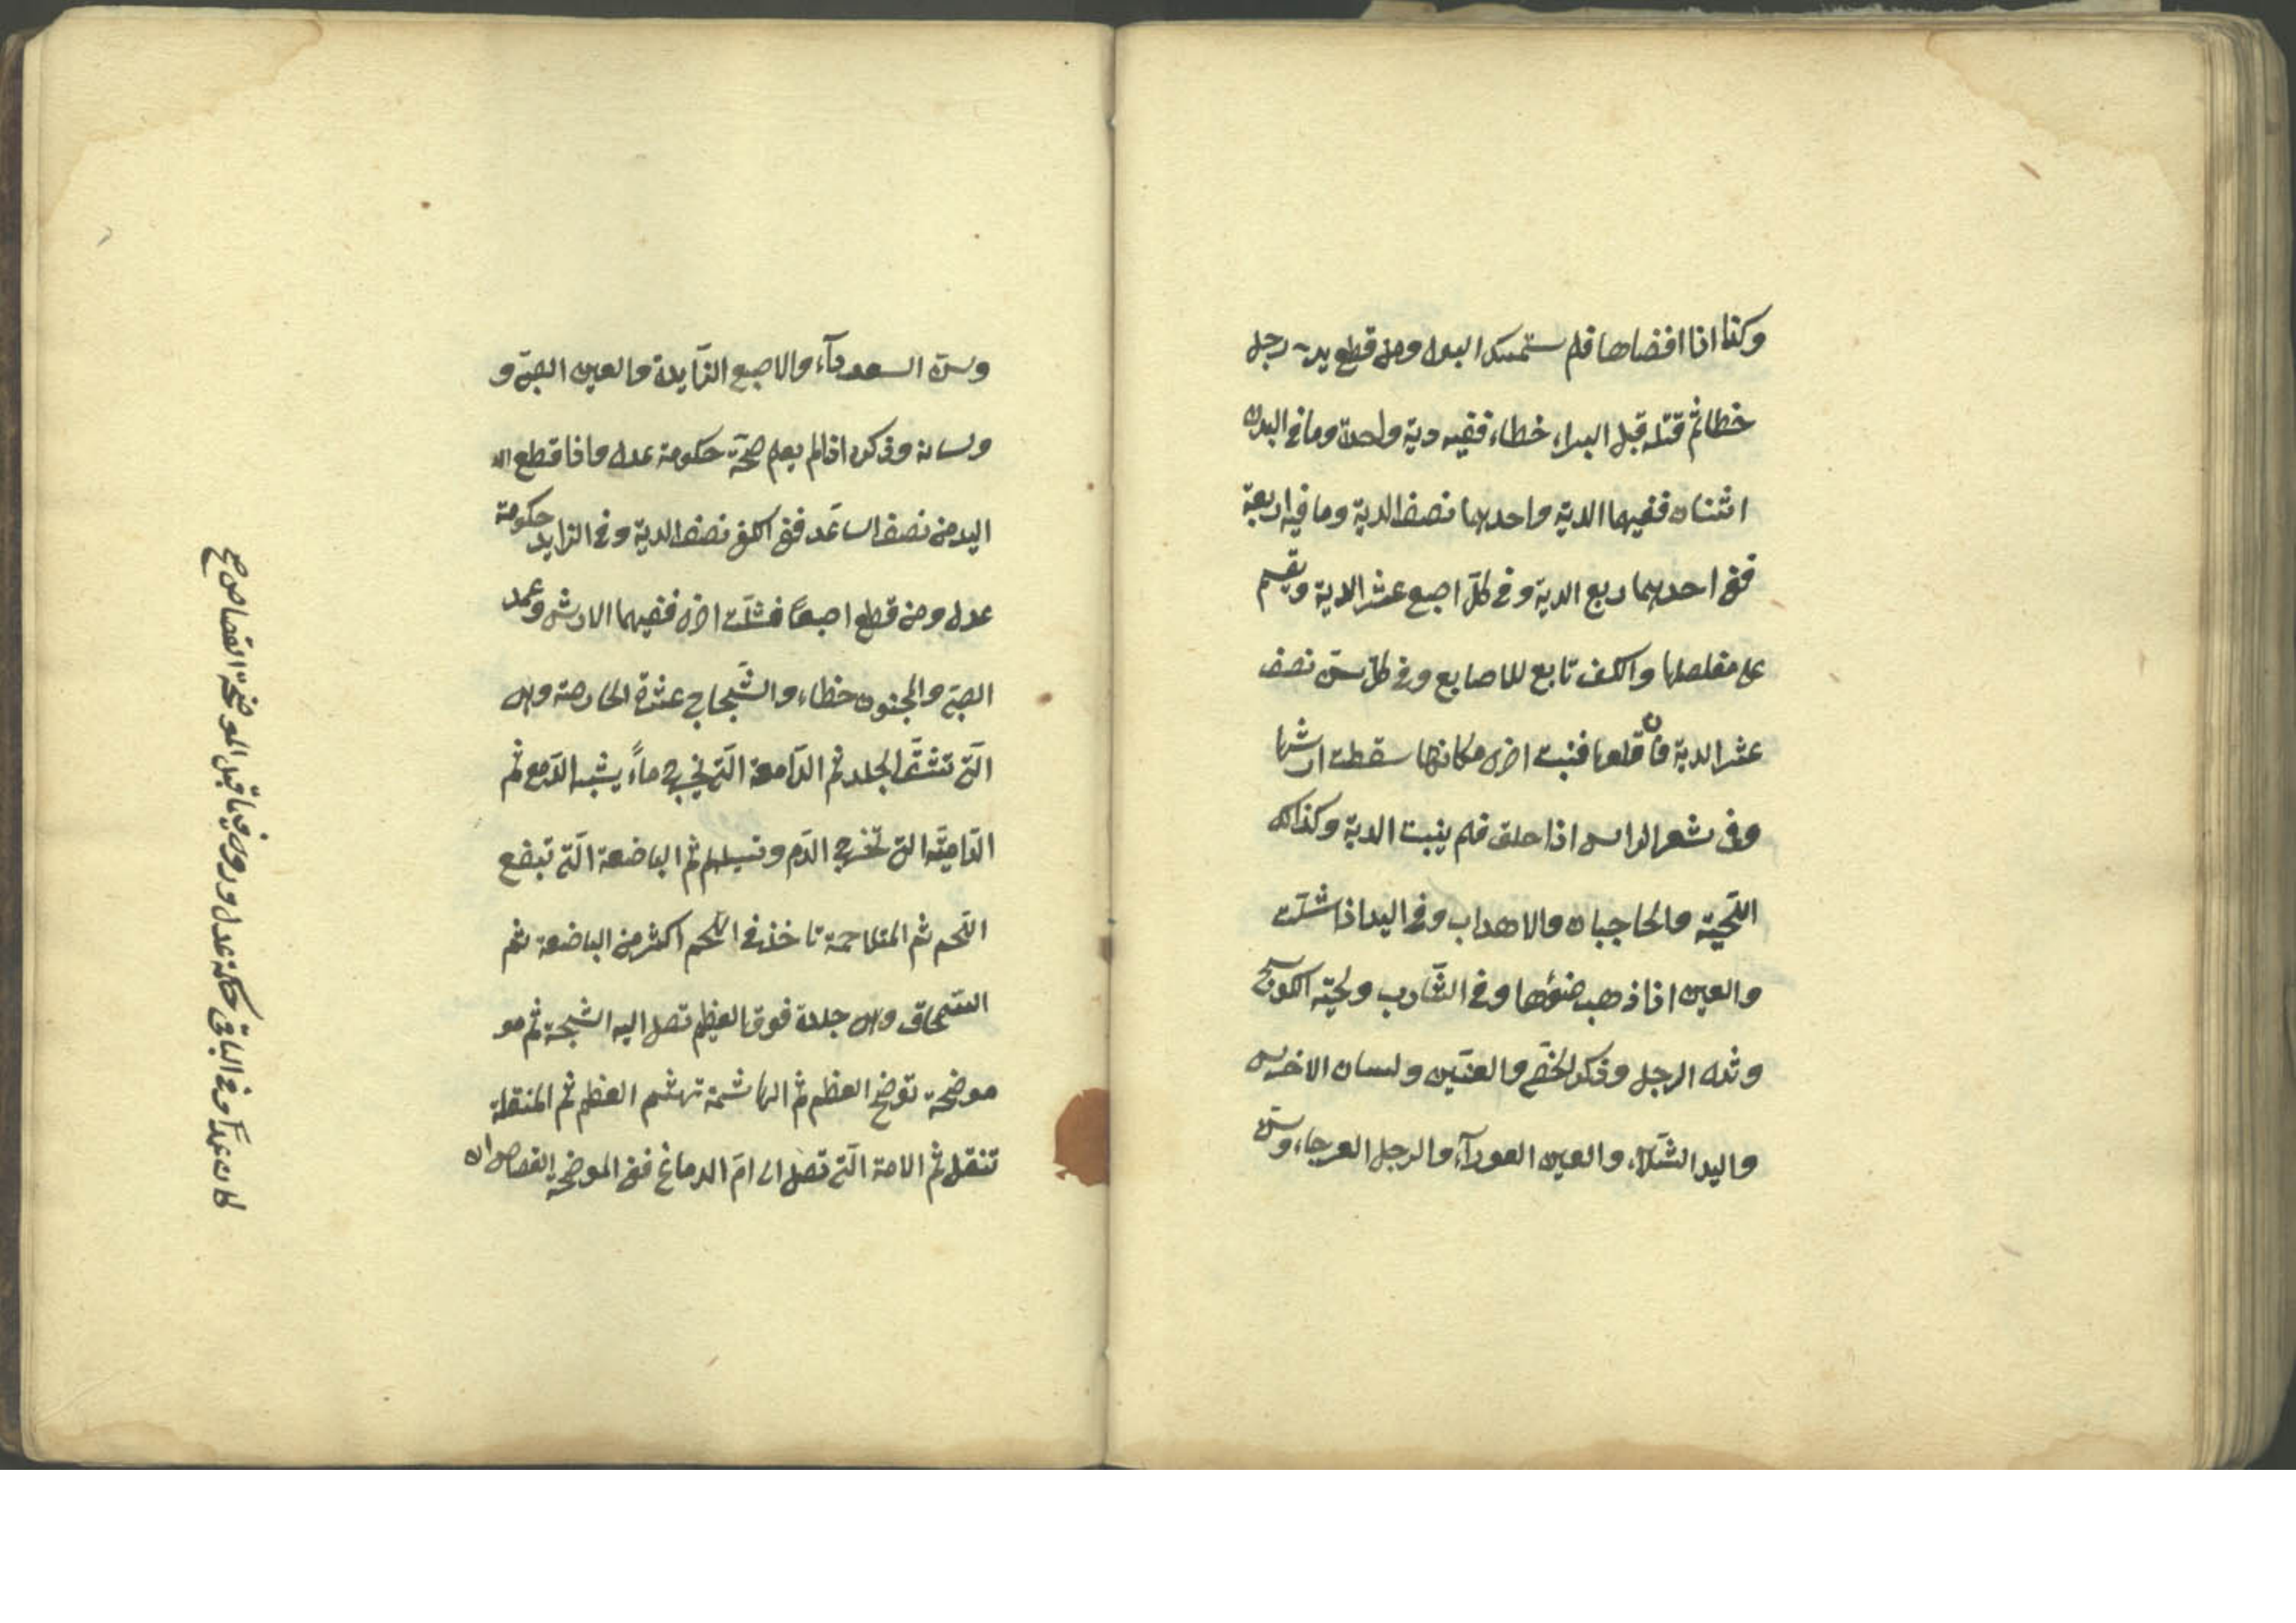 وكذا اذا افضاها فلم ستمسك البول ومن قطع يد رجل
خطا ثم قتله قبل البراء خطاء ففيه دية واحدة وما في البدن
اثنان ففيهما الدية واحديهما نصف الدية وما فيه اربعة
ففى احديهما ربع الدية وفي كل اصبع عشر الدية ويقسم
على مفاصلها والكف تابع للاصابع وفي كل سن نصف
عشر الدية فان قلعها فنبت اخرى مكانها سقطت ارشها
وفى شعر الراس اذا حلق فلم ينبت الدية وكذالك
اللحية والحاجبان والاهداب وفي اليد اذا شلت
والعين اذا ذهب ضوؤها وفي الشارب ولحية الكوسج
وثدى الرجل وذكر الخصى والعنين ولسان الاخرس
واليد الشلاء والعين العوراء والرجل العرجاء وسن
وسن السوداء والاصبع الزايدة والعين الصبى و
ولسانه وذكره اذا لم يعلم صحة حكومة عدل واذا قطع
اليد من نصف الساعد ففى الكف نصف الدية وفي الزايد حكومة
عدل ومن قطع اصبعا فشلت اخرى ففيهما الارش وعمد
الصبى والمجنون خطاء والشجاج عشرة الحارصة وهى
التى تشق الجلد ثم الدامعة التى يخرج ماء يشبه الدمع ثم
الدامية التى تخرج الدم وتسيلهم ثم الباضعة التى تبضع
اللحم ثم المتلاحمة تاخذ في اللحم اكثر من الباضعة ثم
السمحاق وهى جلدة فوق العظم تصل اليه الشجة ثم مو
موضحة توضح العظم ثم الهاشمة تهشم العظم ثم المنقلة
تنقل ثم الامة التى تصل الى ام الدماغ ففى الموضحة القصاص ان
كان عمدا وفي الباقى حكمة عدل وروى فيما قبل الموضحة القصاص صح